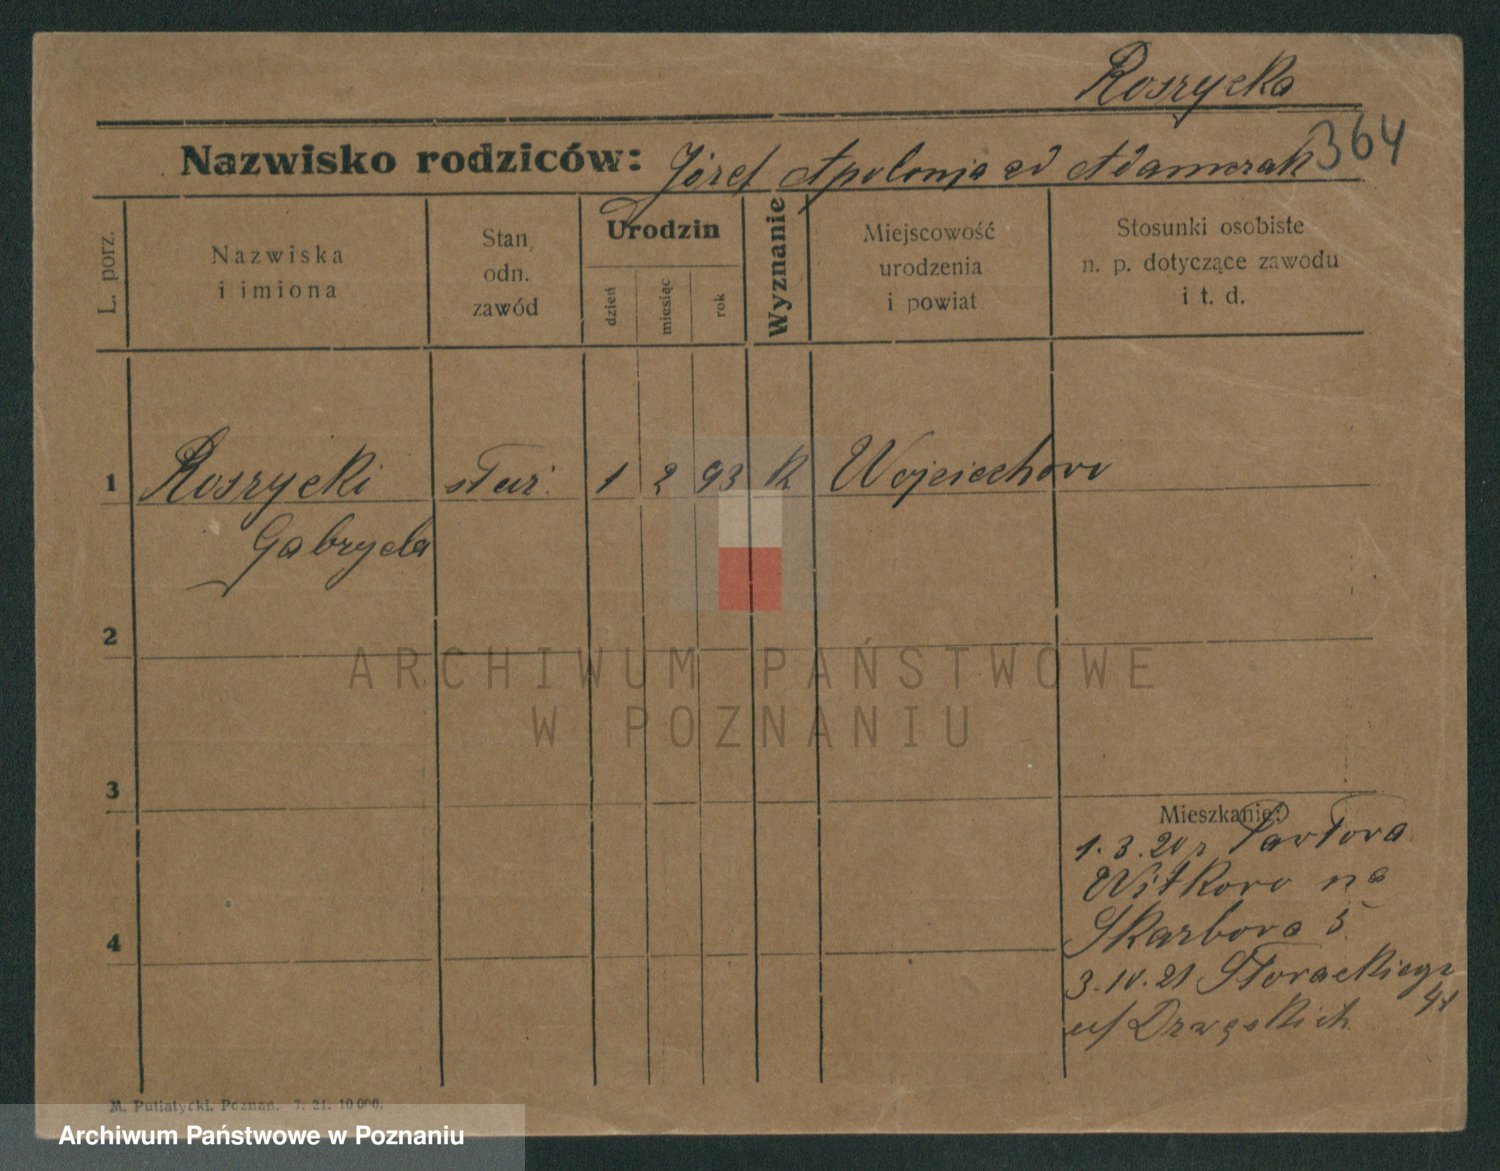 Roszycka
Nazwisko rodziców: Józef Apolonja zd Adamczak 364
L. porz.
Nazwiska
i imiona
Stan
odn.
zawód
Urodzin
dzień
miesiąc
rok
Wyznanie
Miejscowość
urodzenia
i powiat
Stosunki osobiste
n. p. dotyczące zawodu
i t. d.
1 Roszycki służ. 1 2 93 K Wojciechowo
Gabryela
2
3
4
Mieszkanie:
1.3.20 r
Witkowo na
Skarbowa 5
3.IV.21 Słowackiego
41
M. Putiatycki, Poznań. 7. 21. 10 000.
ARCHIWUM PAŃSTWOWE
W POZNANIU
Archiwum Państwowe w Poznaniu